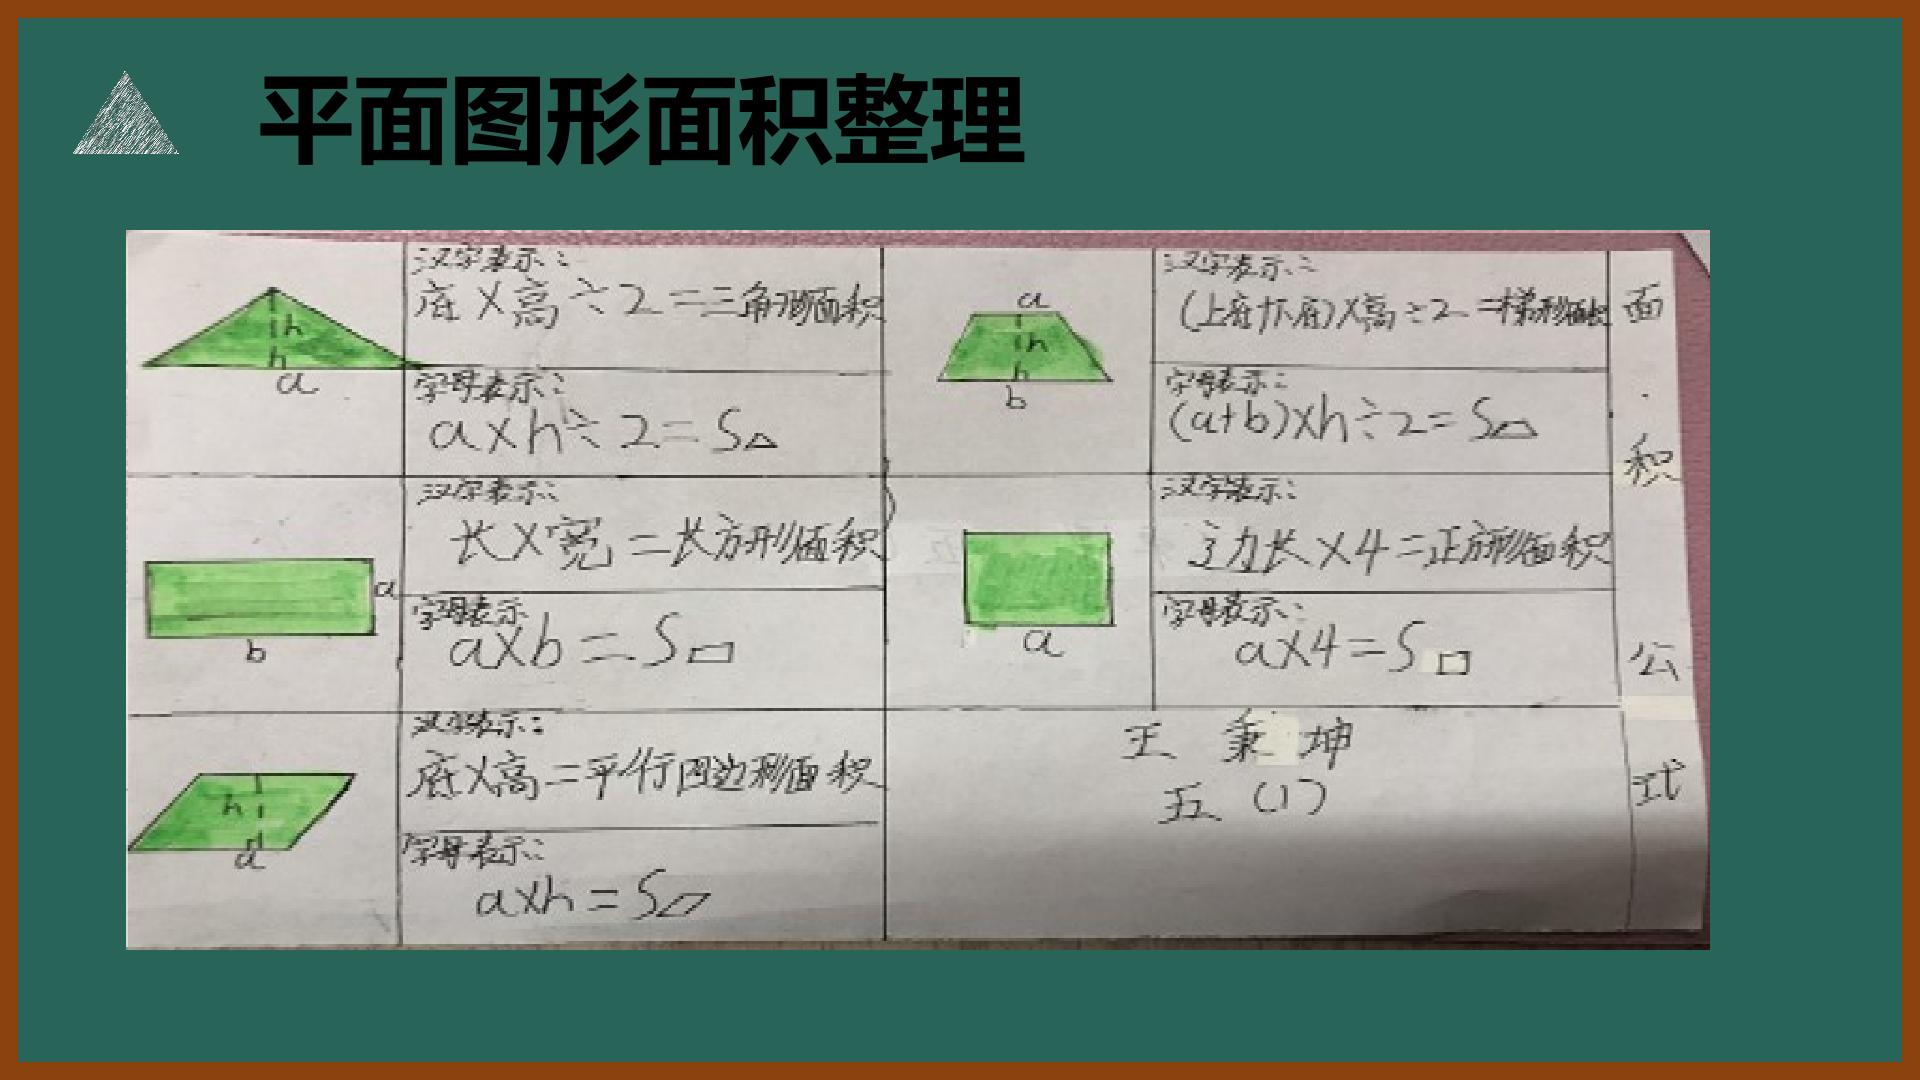 平面图形面积整理
汉字表示:
底×高÷2=三角形面积
h
a
字母表示:
a×h÷2=S△
汉字表示:
(上底+下底)×高÷2=梯形面积
a
h
b
字母表示:
(a+b)×h÷2=S
汉字表示:
长×宽=长方形面积
a
b
字母表示
a×b=S▭
汉字表示:
边长×4=正方形面积
a
字母表示:
a×4=S□
汉字表示:
底×高=平行四边形面积
h
a
字母表示:
a×h=S▱
王秉坤
五(1)
面积公式